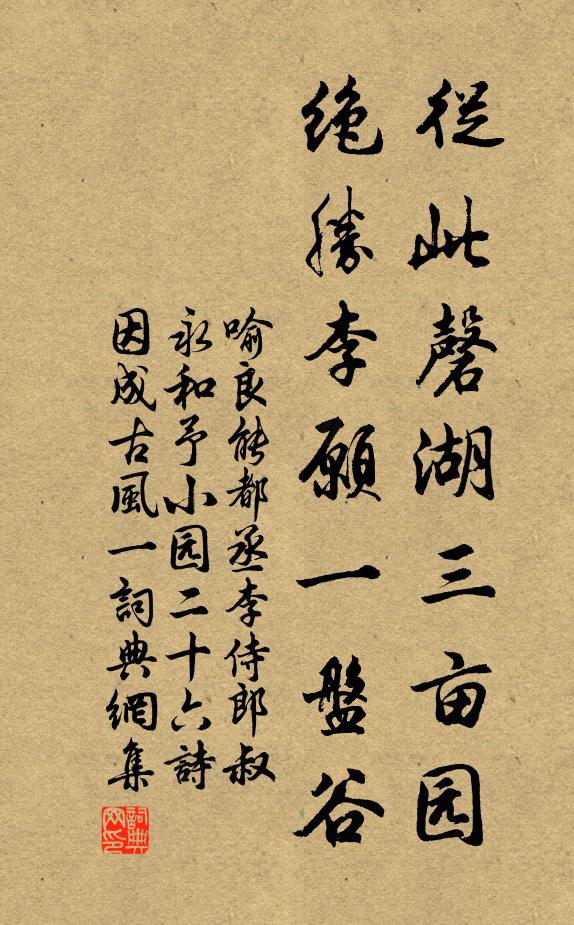 從此磬湖三亩园
绝勝李願一盤谷
喻良能都丞李侍郎叔
永和予小园二十六詩
因成古風一詞典網集
詞典网印